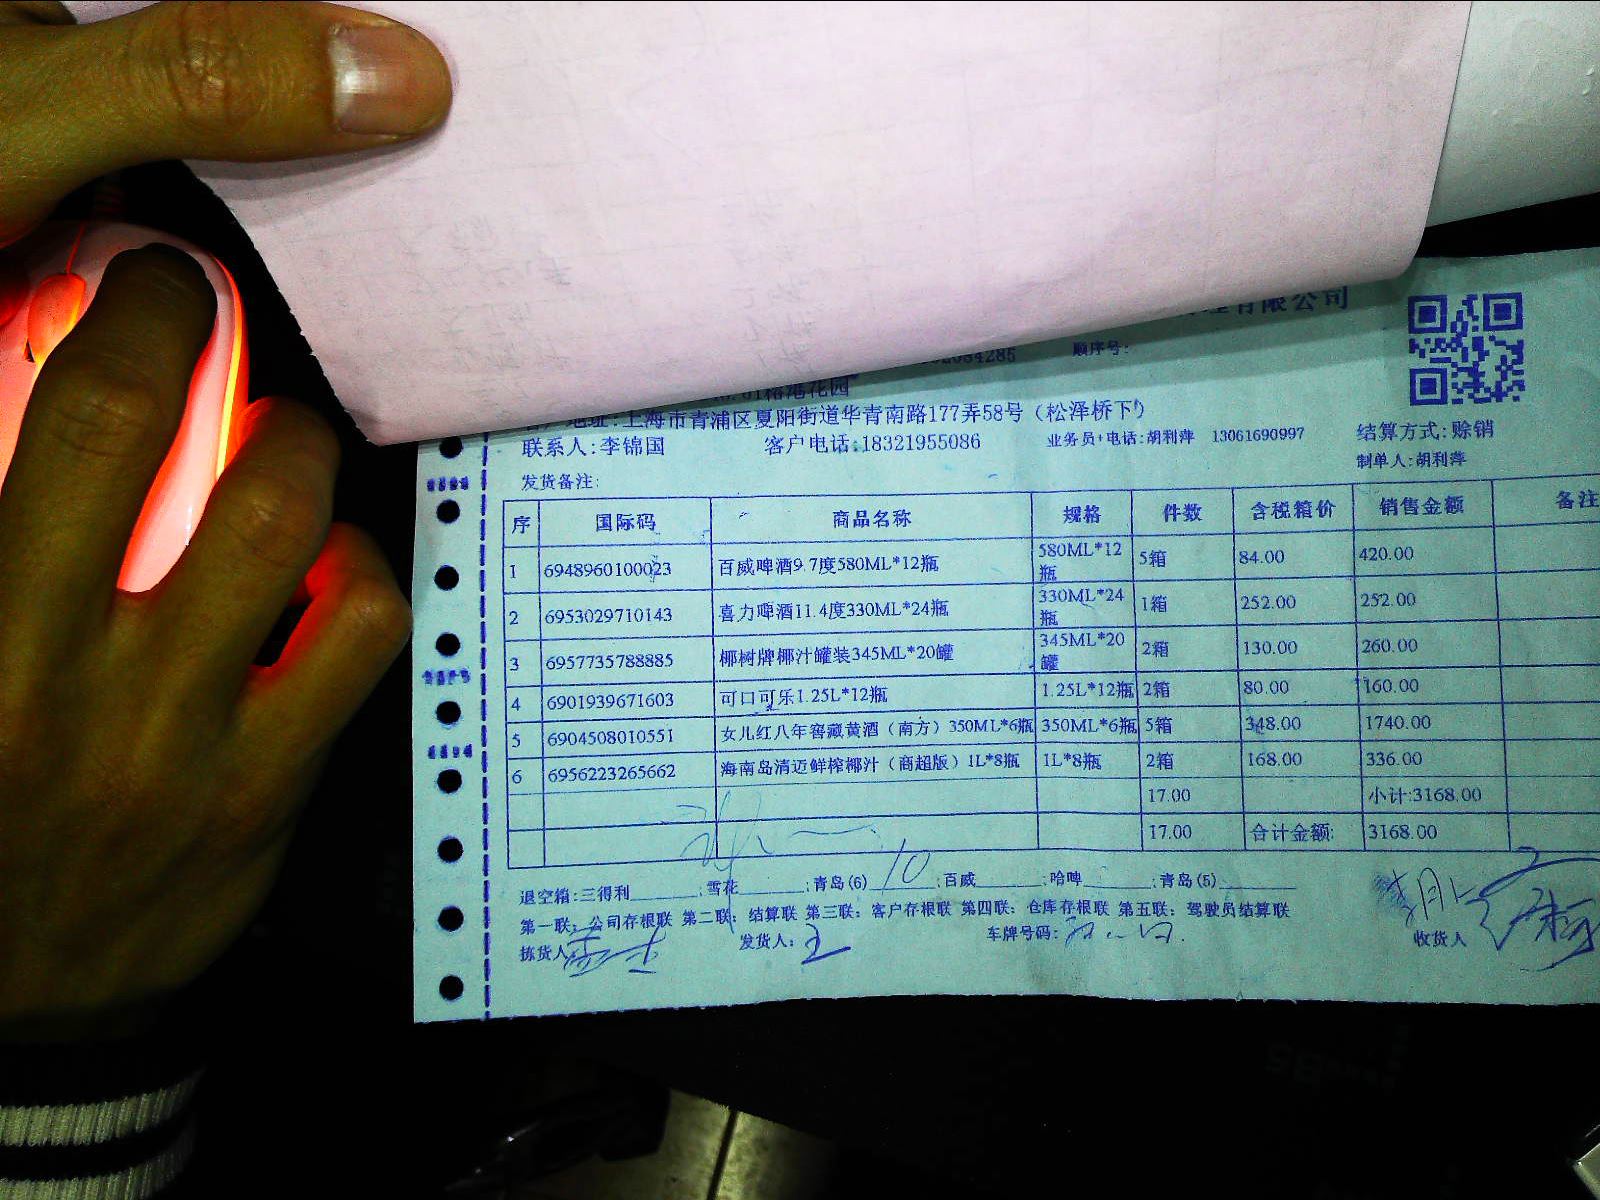 有限公司
84285 顺序号:
裕港花园
地址:上海市青浦区夏阳街道华青南路177弄58号（松泽桥下）
联系人:李锦国 客户电话:18321955086 业务员+电话:胡利萍 13061690997 结算方式:赊销
制单人:胡利萍
发货备注:
序 国际码 商品名称 规格 件数 含税箱价 销售金额 备注
1 6948960100023 百威啤酒9.7度580ML*12瓶 580ML*12瓶 5箱 84.00 420.00
2 6953029710143 喜力啤酒11.4度330ML*24瓶 330ML*24瓶 1箱 252.00 252.00
3 6957735788885 椰树牌椰汁罐装345ML*20罐 345ML*20罐 2箱 130.00 260.00
4 6901939671603 可口可乐1.25L*12瓶 1.25L*12瓶 2箱 80.00 160.00
5 6904508010551 女儿红八年窖藏黄酒（南方）350ML*6瓶 350ML*6瓶 5箱 348.00 1740.00
6 6956223265662 海南岛清迈鲜榨椰汁（商超版）1L*8瓶 1L*8瓶 2箱 168.00 336.00
17.00 小计:3168.00
17.00 合计金额: 3168.00
退空箱:三得利______;雪花______;青岛(6) 10 ;百威______;哈啤______;青岛(5)______
第一联：公司存根联 第二联：结算联 第三联：客户存根联 第四联：仓库存根联 第五联：驾驶员结算联
拣货人 发货人: 王 车牌号码: 收货人